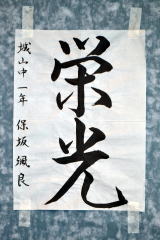 栄光
城山中一年 保坂颯良